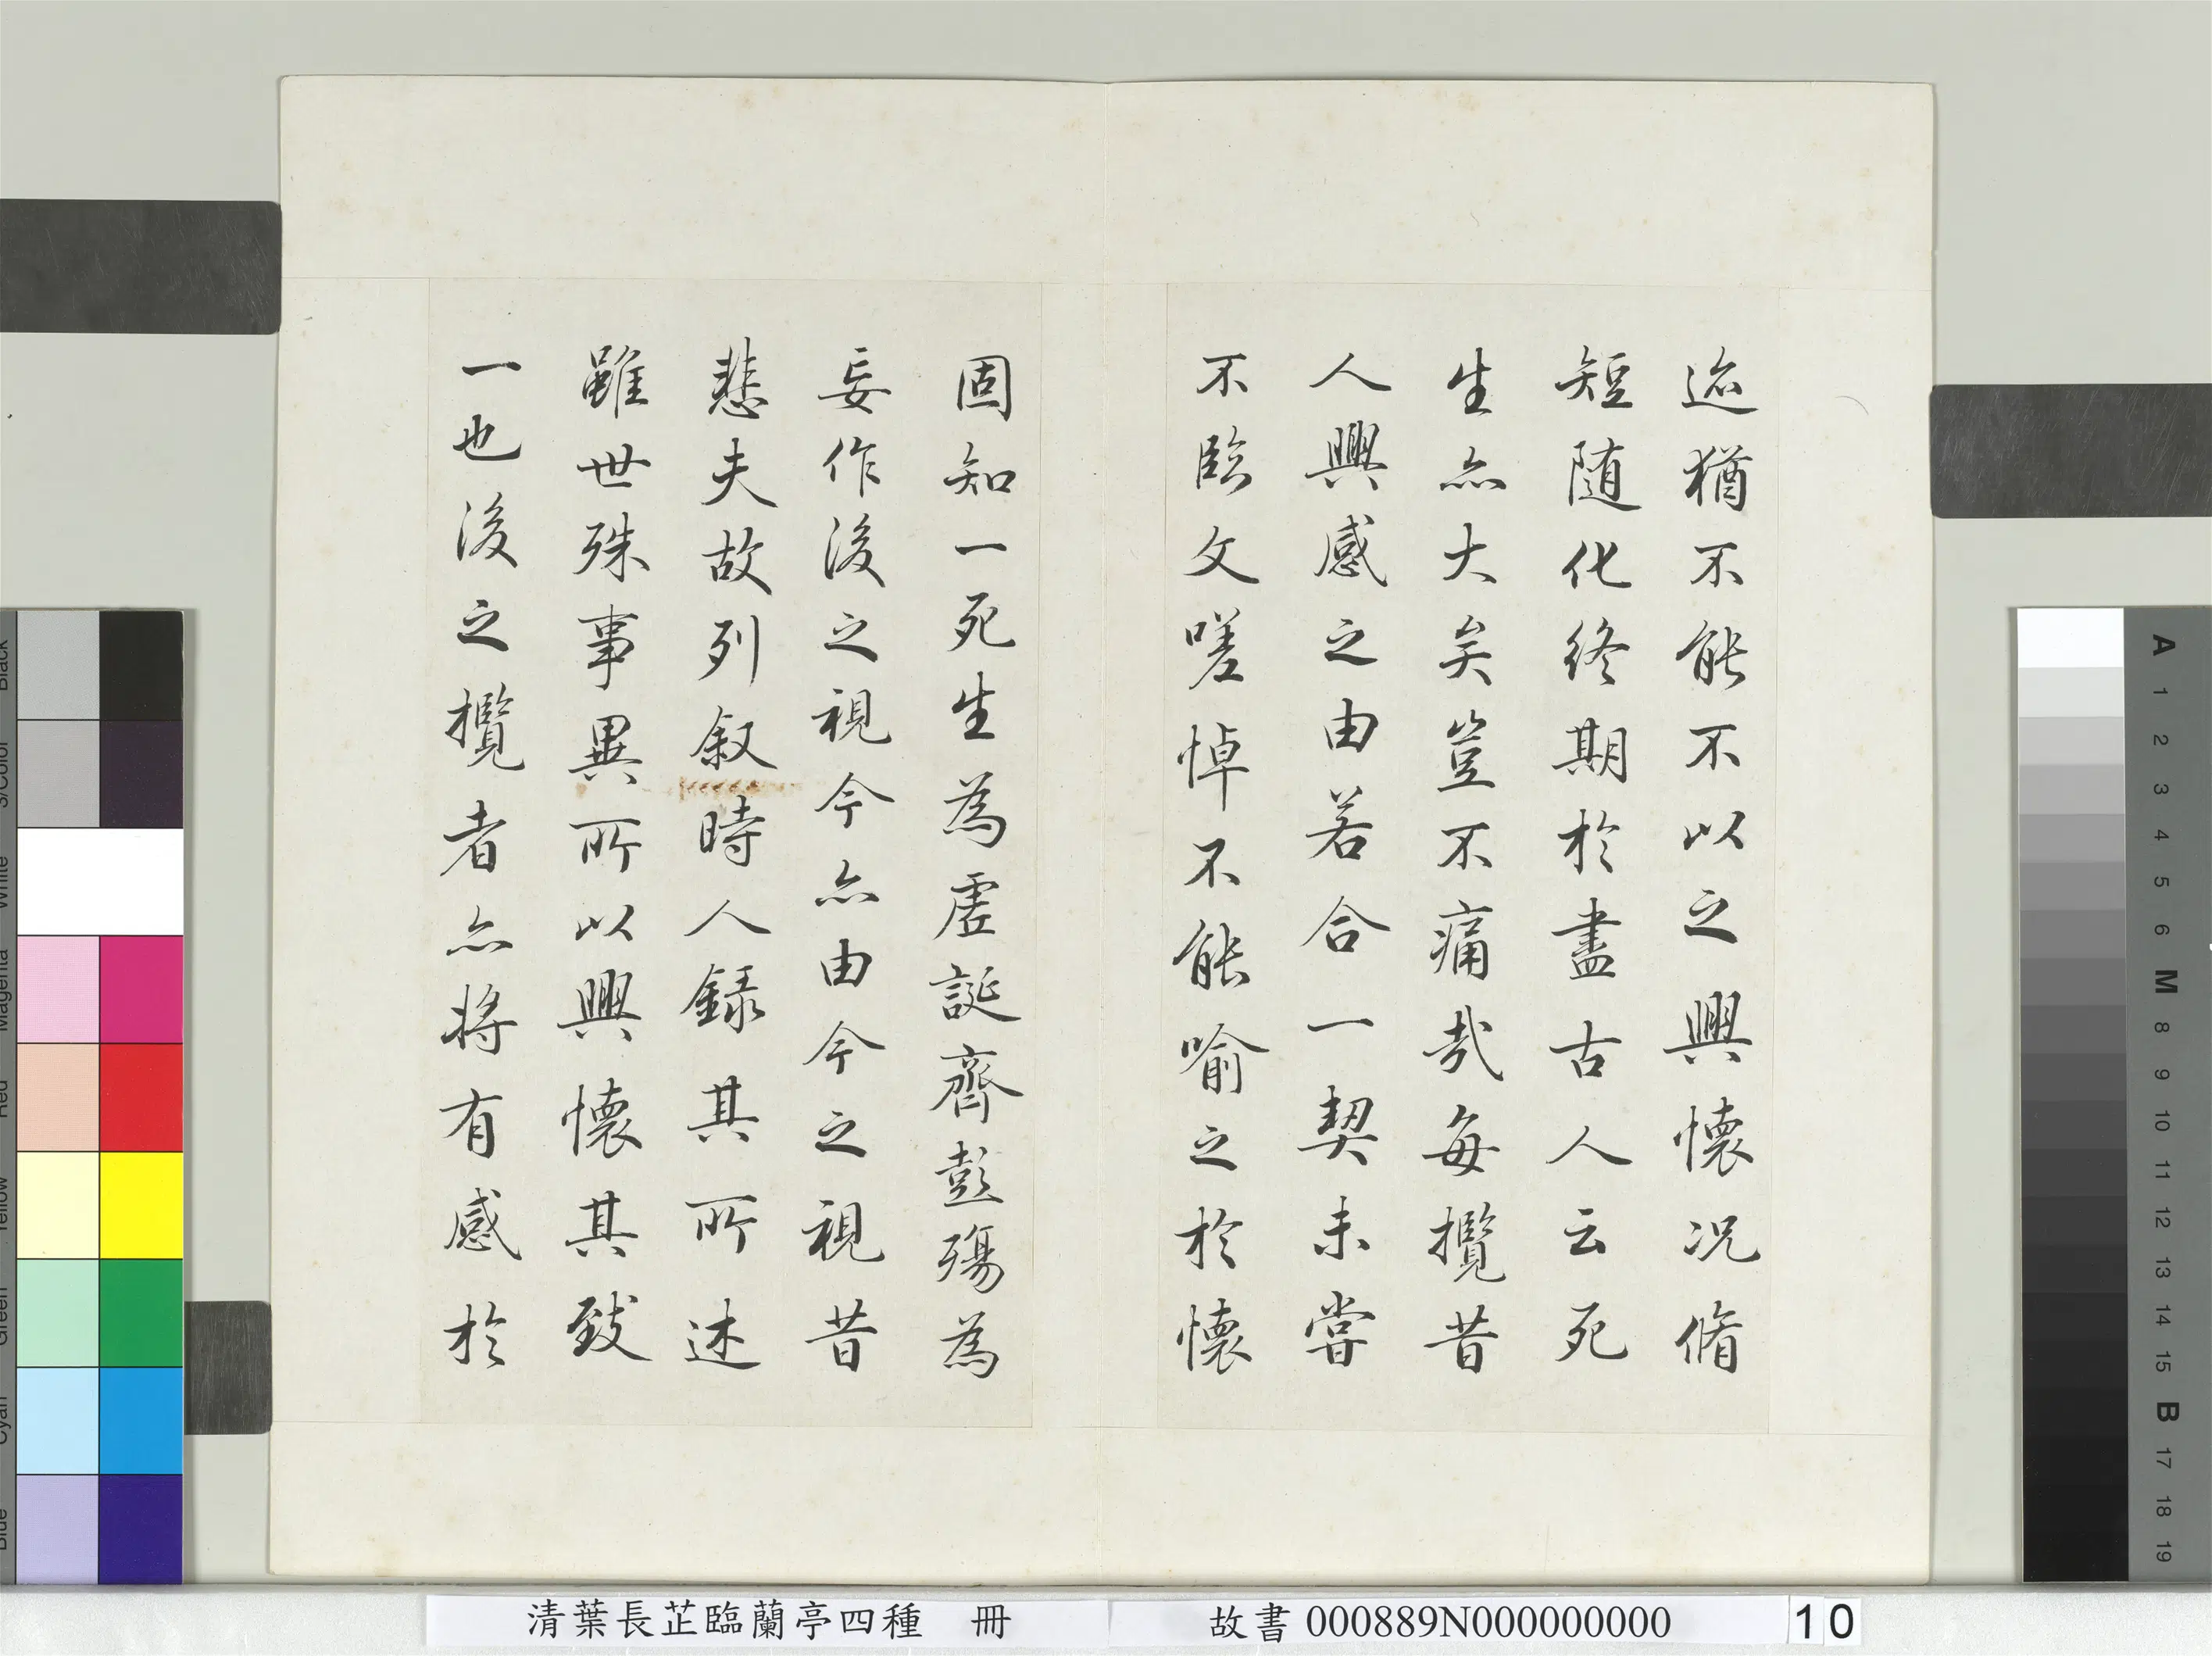 迹猶不能不以之興懷况脩
短隨化終期於盡古人云死
生亦大矣豈不痛哉每攬昔
人興感之由若合一契未嘗
不臨文嗟悼不能喻之於懷
固知一死生為虛誕齊彭殤為
妄作後之視今亦由今之視昔
悲夫故列叙時人錄其所述
雖世殊事異所以興懷其致
一也後之攬者亦將有感於
清葉長芷臨蘭亭四種 冊
故書000889N000000000
10
Black
3/Color
White
Magenta
Red
Yellow
Green
Cyan
Blue
A
1
2
3
4
5
6
M
8
9
10
11
12
13
14
15
B
17
18
19